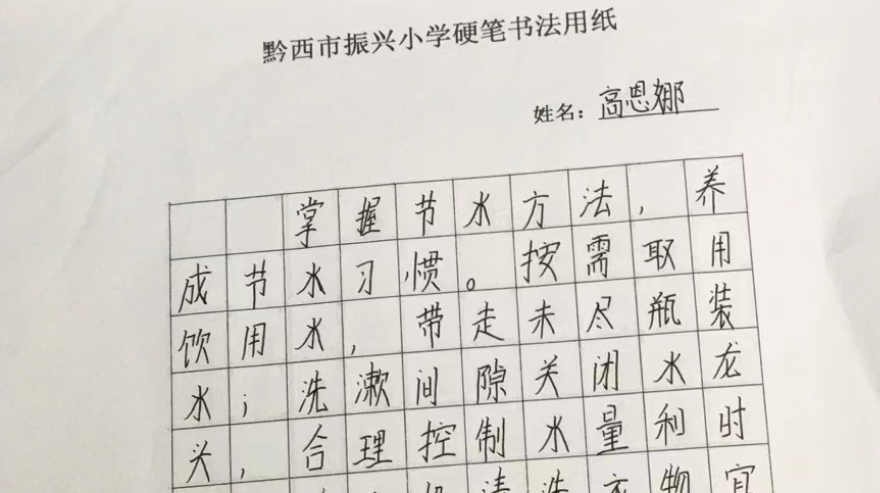 黔西市振兴小学硬笔书法用纸
姓名：高恩娜
掌握节水方法，养
成节水习惯。按需取用
饮用水，带走未尽瓶装
水；洗漱间隙关闭水龙
头，合理控制水量利时
清洗衣物宜